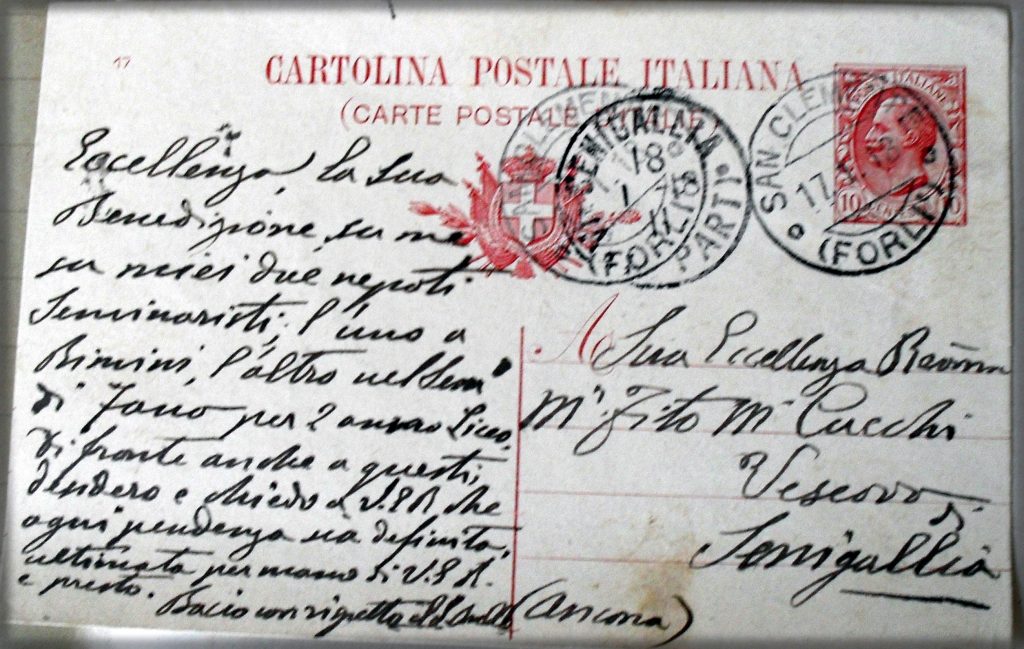 17
CARTOLINA POSTALE ITALIANA
(CARTE POSTALE D'ITALIE)
SAN CLEMENTE
17
(FORLI)
SENIGALLIA
18
PARTI
(FORLI)
10 10
Eccellenza, la sua
Benedizione su me
su miei due nepoti
Seminaristi; l'uno a
Rimini, l'altro nel Sem°
di Fano per 2 anno Liceo.
Di fronte anche a questi,
desidero e chiedo a V.E.R. che
ogni pendenza sia definita,
ultimata per mano di V.E.R.
e presto.
Bacio con rispetto
A Sua Eccellenza
Mr Tito Mª Cucchi
Vescovo di
Senigallia
(Ancona)